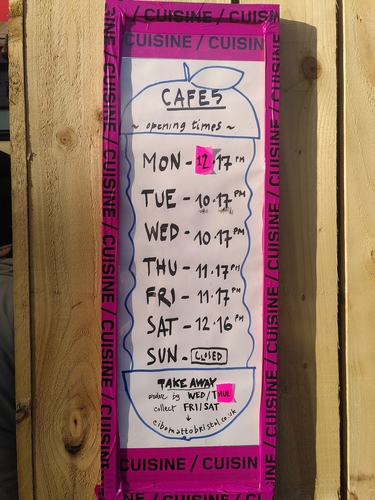 CUISINE / CUISIN
CUISINE / CUISIN
CAFE5
~ opening times ~
MON - 12.17PM
TUE - 10.17PM
WED - 10.17PM
THU - 11.17PM
FRI - 11.17PM
SAT - 12.16PM
SUN - CLOSED
TAKE AWAY
order by WED/THUR
collect FRI/SAT
cibomattobristol.co.uk
CUISINE / CUISIN
CUISINE / CUISINE / CUISINE / CUISINE
CUISINE / CUISINE / CUISINE / CUISINE